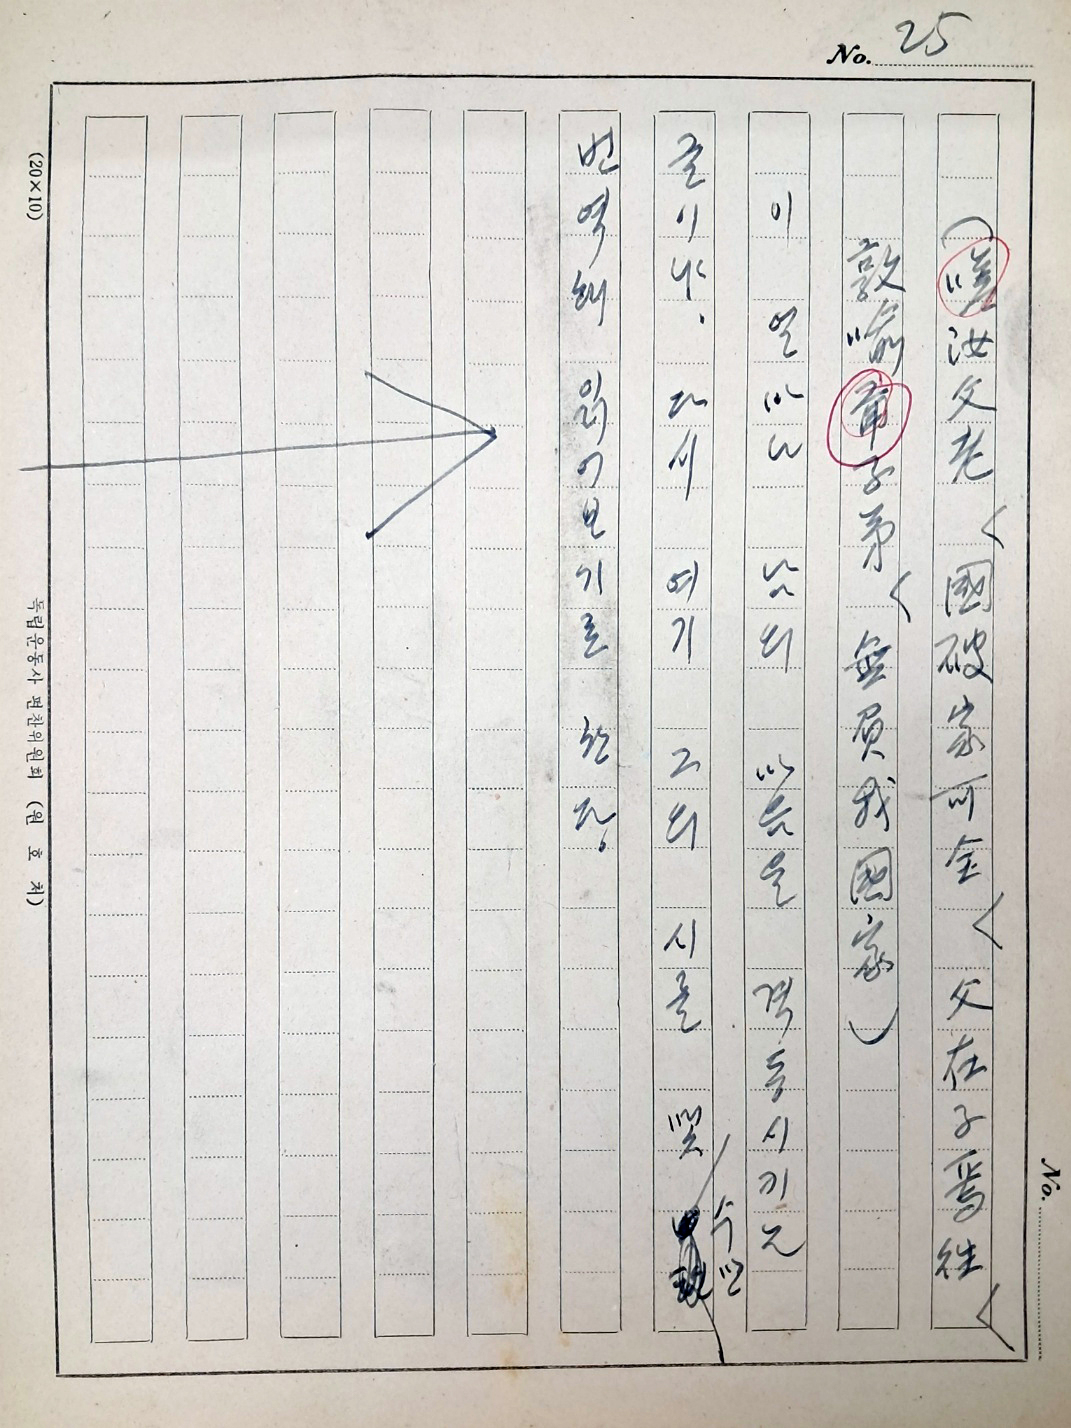 No. 25
No.
(嗟汝父老 國破家可全 父在子焉往
敦喻 子弟 無負我國家)
이 얼마나 남의 마음을 격동시키는
글이냐. 다시 여기 그의 시를 몇 수만
번역해 읽어보기로 한다.
(20×10)
독립운동사 편찬위원회 (원호처)